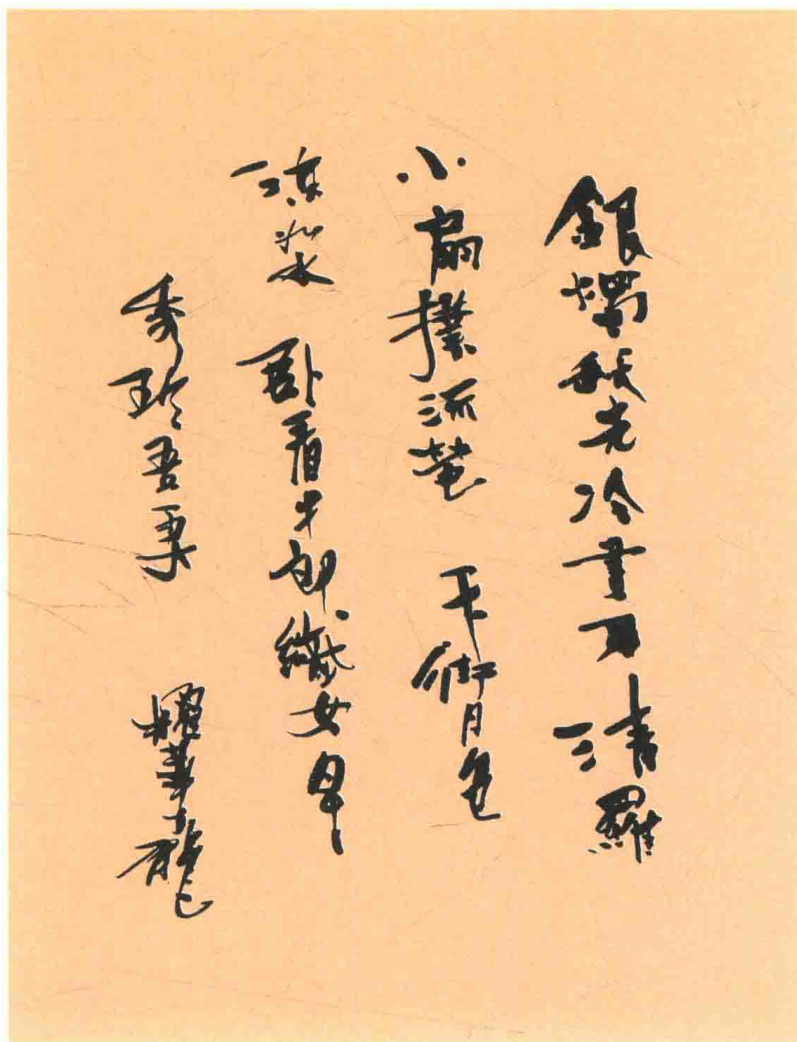 銀燭秋光冷畫屏 清羅
小扇撲流螢 天街月色
涼如水 卧看牛郎織女星
秀玲吾妻 耀華